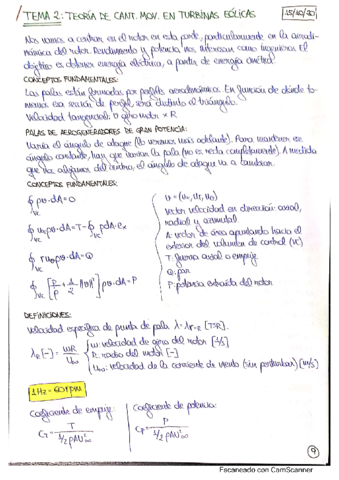 TEMA 2: TEORÍA DE CANT. MOV. EN TURBINAS EÓLICAS
15/10/20
Nos vamos a centrar en el rotor en esta parte, particularmente en la aerodi-
námica del rotor. Rendimiento y potencia nos interesan como ingenieros. El
objetivo es obtener energía eléctrica, a partir de energía cinética.
CONCEPTOS FUNDAMENTALES:
Las palas están formadas por perfiles aerodinámicos. En función de dónde to-
memos esa sección de perfil, será distinto el triángulo.
Velocidad tangencial: Ω giro motor × R
PALAS DE AEROGENERADORES DE GRAN POTENCIA:
Varía el ángulo de ataque (lo veremos más adelante). Para mantener ese
ángulo constante, hay que variar la pala (no es recta completamente). A medida
que nos alejamos del centro, el ángulo de ataque va a cambiar.
CONCEPTOS FUNDAMENTALES:
∮vc ρυ·dA=0
∮vc uxρυ·dA=T-∮vc pdA·ex
∮vc ruθρυ·dA=Q
∮vc [p/ρ + 1/2 |υ·υ|] ρυ·dA=P
υ=(ux, ur, uθ)
Vector velocidad en dirección axial,
radial y azimutal
A: vector de área apuntando hacia el
exterior del volumen de control (VC)
T: fuerza axial o empuje
Q: par
P: potencia extraída del rotor
DEFINICIONES:
Velocidad específica de punta de pala λ [TSR].
λR [-] = ωR / U∞
ω: velocidad de giro del rotor [1/s]
R: radio del rotor [-]
U∞: velocidad de la corriente de viento (sin perturbar) [m/s]
1Hz - 60rpm
Coeficiente de empuje:
CT = T / 1/2 ρAU²∞
Coeficiente de potencia:
CP = P / 1/2 ρAU³∞
9
Escaneado con CamScanner